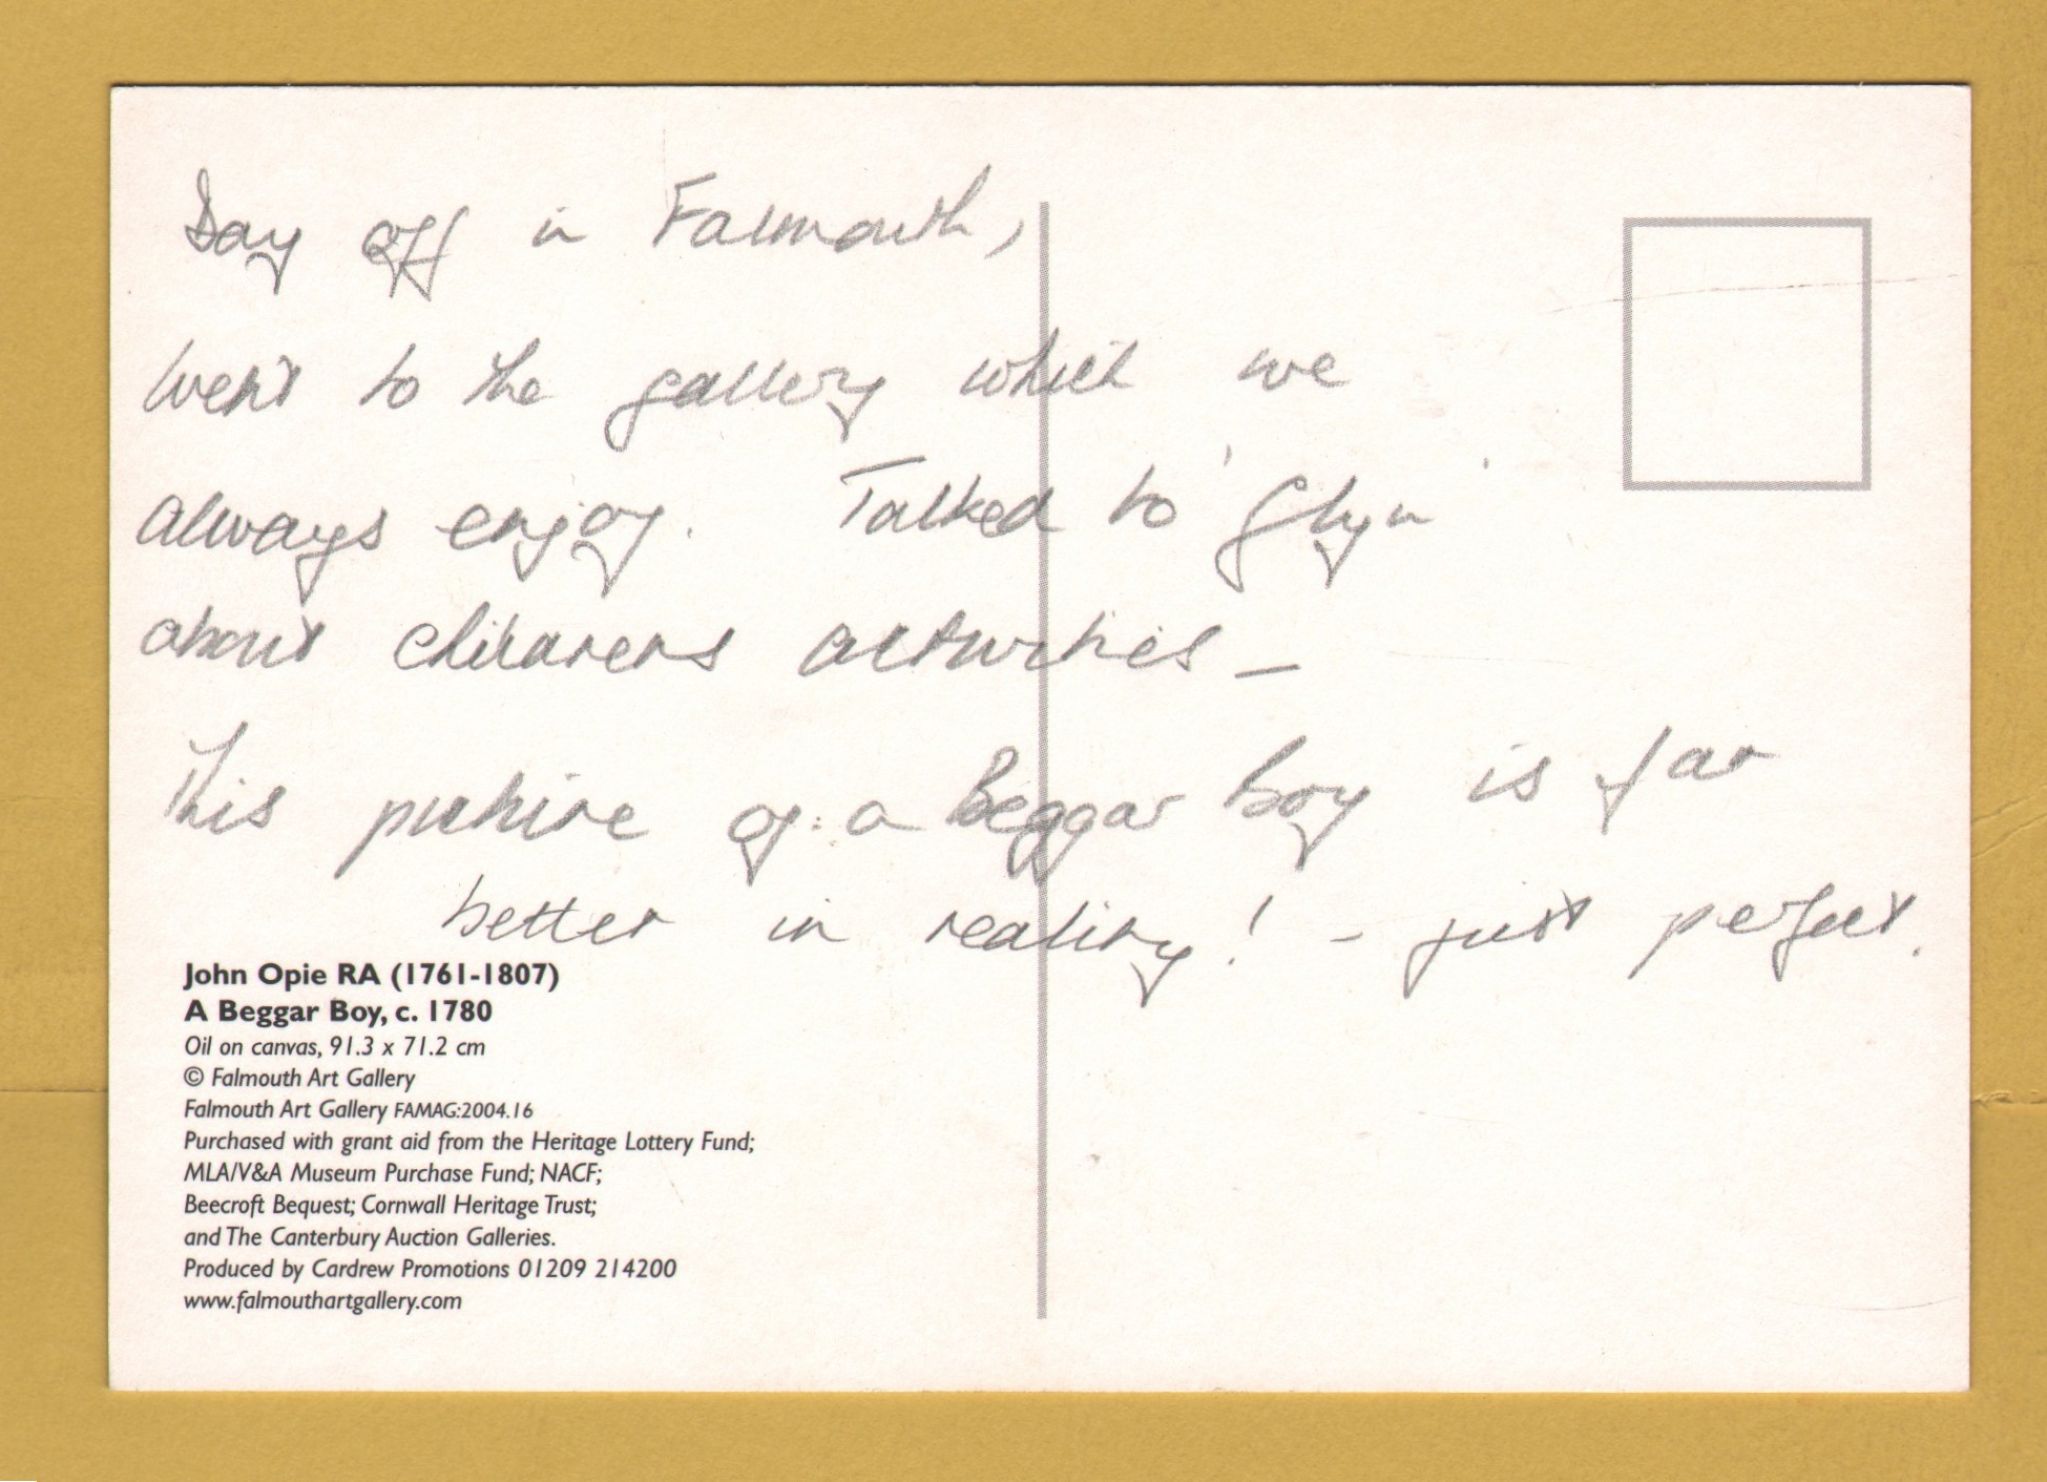 Day off in Falmouth,
Went to the gallery which we
always enjoy. Talked to 'Glyn'
about childrens activities –
This picture of a Beggar boy is far
better in reality! – just perfect.
John Opie RA (1761-1807)
A Beggar Boy, c. 1780
Oil on canvas, 91.3 x 71.2 cm
© Falmouth Art Gallery
Falmouth Art Gallery FAMAG:2004.16
Purchased with grant aid from the Heritage Lottery Fund;
MLA/V&A Museum Purchase Fund; NACF;
Beecroft Bequest; Cornwall Heritage Trust;
and The Canterbury Auction Galleries.
Produced by Cardrew Promotions 01209 214200
www.falmouthartgallery.com